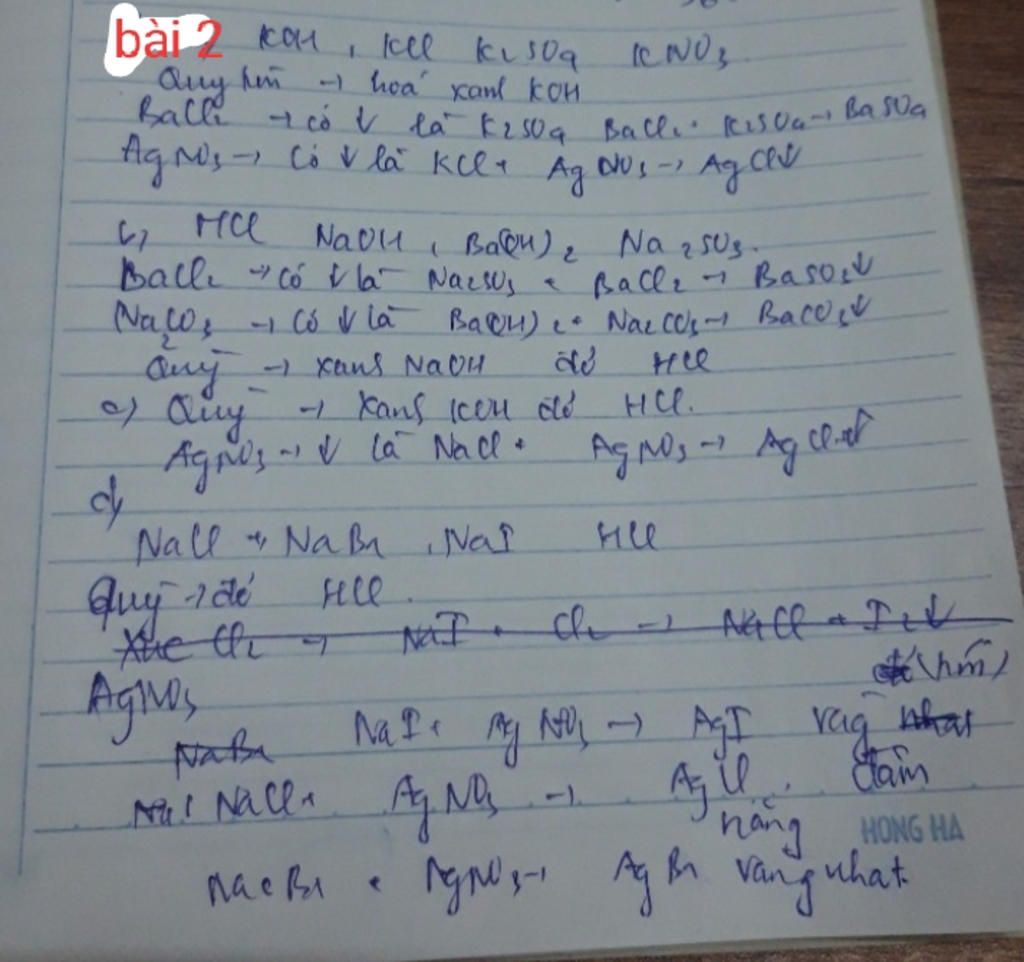 bài 2 KOH, KCl K2SO4 KNO3
Quỳ tím → hoá xanh KOH
BaCl2 → có ↓ là K2SO4 BaCl2 + K2SO4 → BaSO4
AgNO3 → Có ↓ là KCl + AgNO3 → AgCl↓
b, HCl NaOH, Ba(OH)2 Na2SO3.
BaCl2 → có ↓ là Na2SO3 + BaCl2 → BaSO3↓
Na2CO3 → có ↓ là Ba(OH)2 + Na2CO3 → BaCO3↓
Quỳ → xanh NaOH đỏ HCl
c) Quỳ → Xanh KOH đỏ HCl.
AgNO3 → ↓ là NaCl + AgNO3 → AgCl↓
d,
NaCl, NaBr, NaI HCl
Quỳ → đỏ HCl.
Xục Cl2 → NaI + Cl2 → NaCl + I2↓
(tím)
AgNO3
NaBr NaI + AgNO3 → AgI vàg nhat
NaI NaCl + AgNO3 → AgCl. đậm
trắng
HONG HA
NaBr + AgNO3 → AgBr vang nhat.